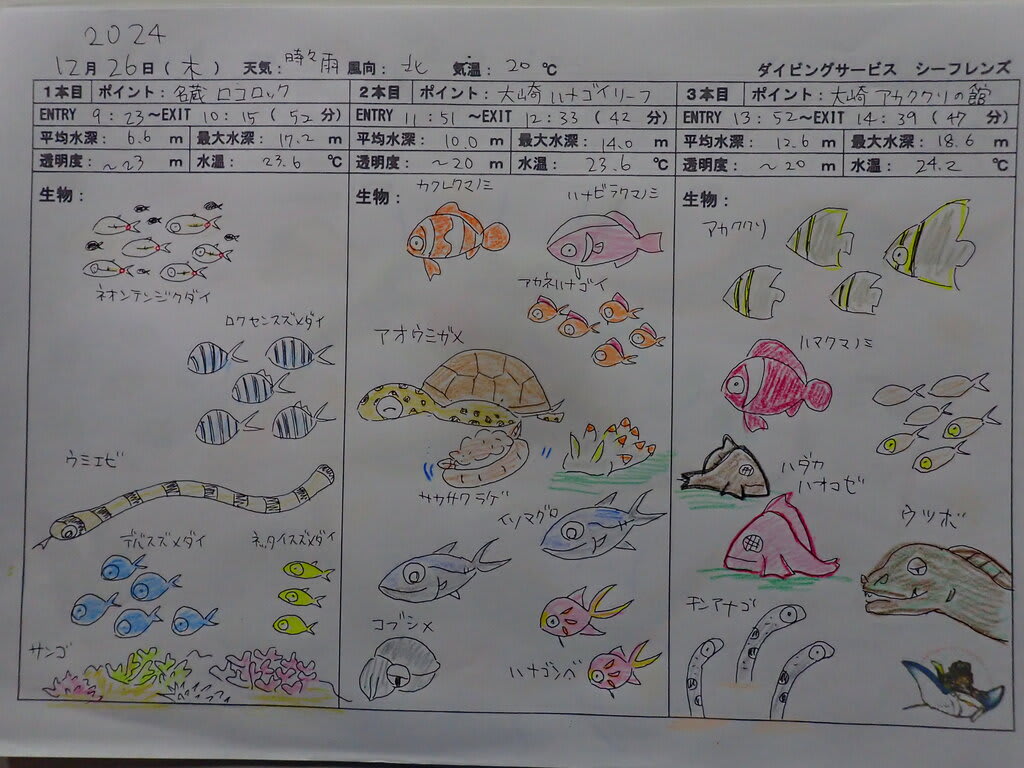 2024
12月26日(木) 天気:時々雨 風向:北 気温:20℃ ダイビングサービス シーフレンズ
1本目 ポイント:名蔵 ロコロック
ENTRY 9:23~EXIT 10:15(52分)
平均水深: 6.6 m 最大水深: 17.2 m
透明度: ~23 m 水温: 23.6 ℃
生物:
ネオンテンジクダイ
ロクセンスズメダイ
ウミエビ
デバスズメダイ
ネッタイスズメダイ
サンゴ
2本目 ポイント:大崎 ハナゴイリーフ
ENTRY 11:51~EXIT 12:33(42分)
平均水深: 10.0 m 最大水深: 14.0 m
透明度: ~20 m 水温: 23.6 ℃
生物:
カクレクマノミ
ハナビラクマノミ
アカネハナゴイ
アオウミガメ
サカサクラゲ
イソマグロ
コブシメ
ハナゴンベ
3本目 ポイント:大崎 アカククリの館
ENTRY 13:52~EXIT 14:39(47分)
平均水深: 12.6 m 最大水深: 18.6 m
透明度: ~20 m 水温: 24.2 ℃
生物:
アカククリ
ハマクマノミ
ハダカ
ハオコゼ
ウツボ
チンアナゴ